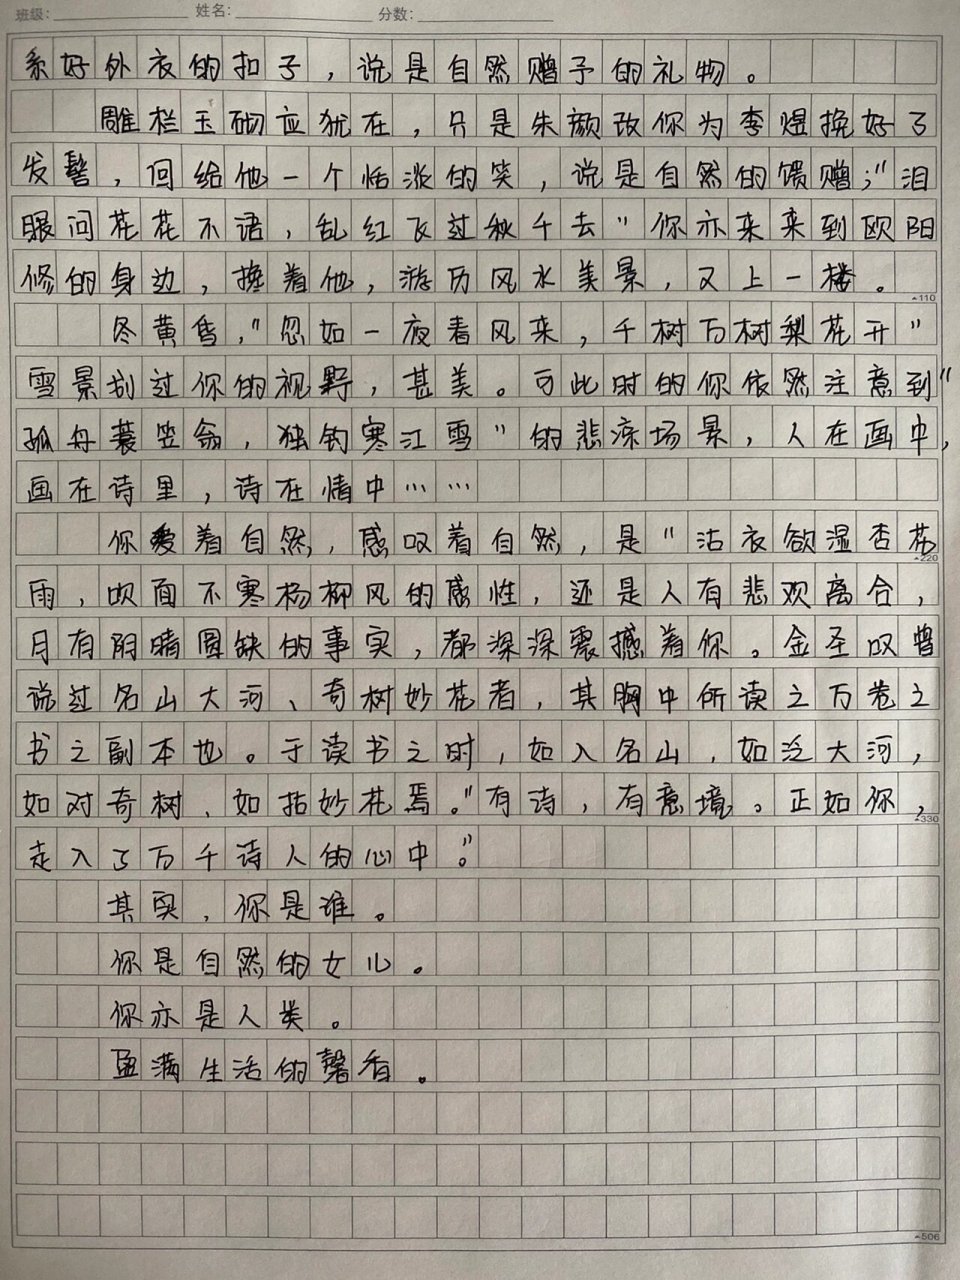 班级: 姓名: 分数:
系好外衣的扣子，说是自然赠予的礼物。
雕栏玉砌应犹在，只是朱颜改你为李煜挽好了
发髻，回给他一个恬淡的笑，说是自然的馈赠；"泪
眼问花花不语，乱红飞过秋千去"你亦来来到欧阳
修的身边，搀着他，游历风水美景，又上一楼。
▲110
冬黄昏，"忽如一夜春风来，千树万树梨花开"
雪景划过你的视野，甚美。可此时的你依然注意到"
孤舟蓑笠翁，独钓寒江雪"的悲凉场景，人在画中，
画在诗里，诗在情中……
你爱着自然，感叹着自然，是"沾衣欲湿杏花
▲220
雨，吹面不寒杨柳风的感性，还是人有悲欢离合，
月有阴晴圆缺的事实，都深深震撼着你。金圣叹曾
说过名山大河、奇树妙花者，其胸中所读之万卷之
书之副本也。于读书之时，如入名山，如泛大河，
如对奇树，如拈妙花焉。"有诗，有意境。正如你，
▲330
走入了万千诗人的心中。"
其实，你是谁。
你是自然的女儿。
你亦是人类。
盈满生活的馨香。
▲506